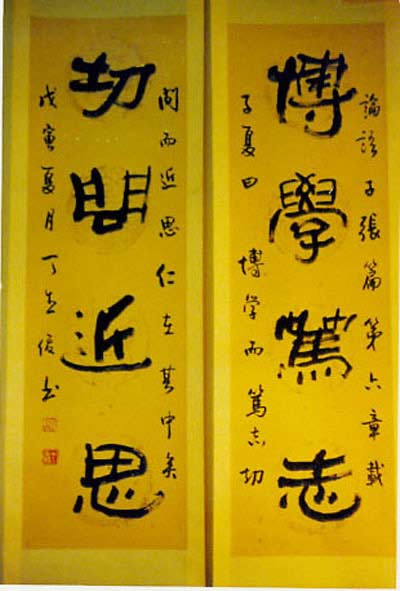 論語子張篇第六章載
博學篤志
子夏曰博学而篤志切
問而近思仁在其中矣
切問近思
戊寅夏月丁俊书